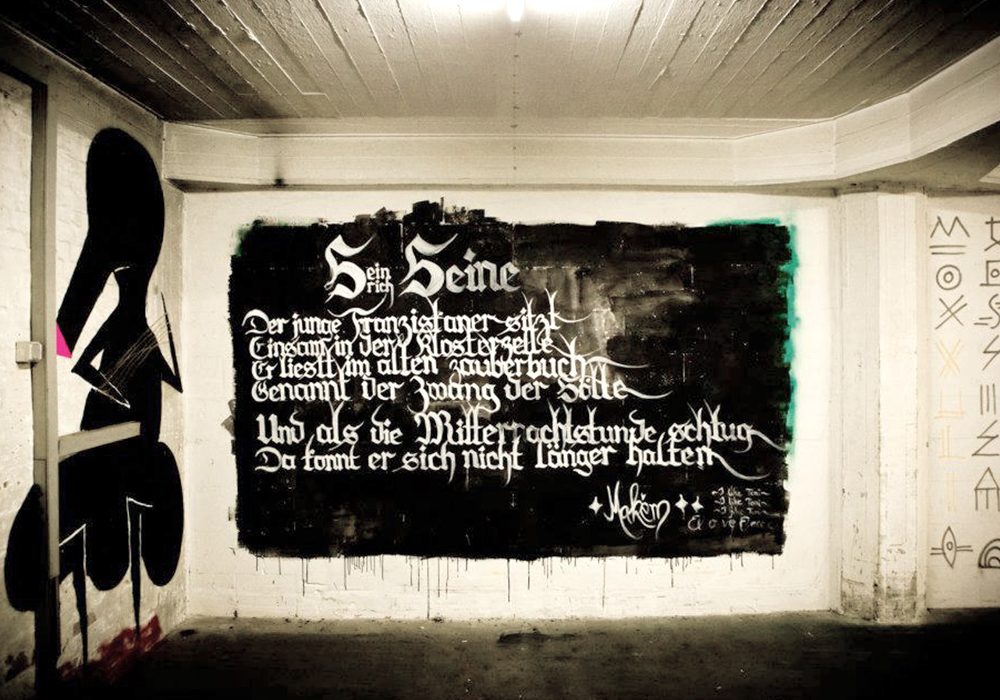 Heinrich Heine
Der junge Franziskaner sitzt
Einsam in der Klosterzelle
Er liest im alten zauberbuch
Genannt der Zwang der Hölle
Und als die Mitternachtstunde schlug
Da konnt er sich nicht länger halten
~I like Toni~
~I like Toni~
~I like Toni~